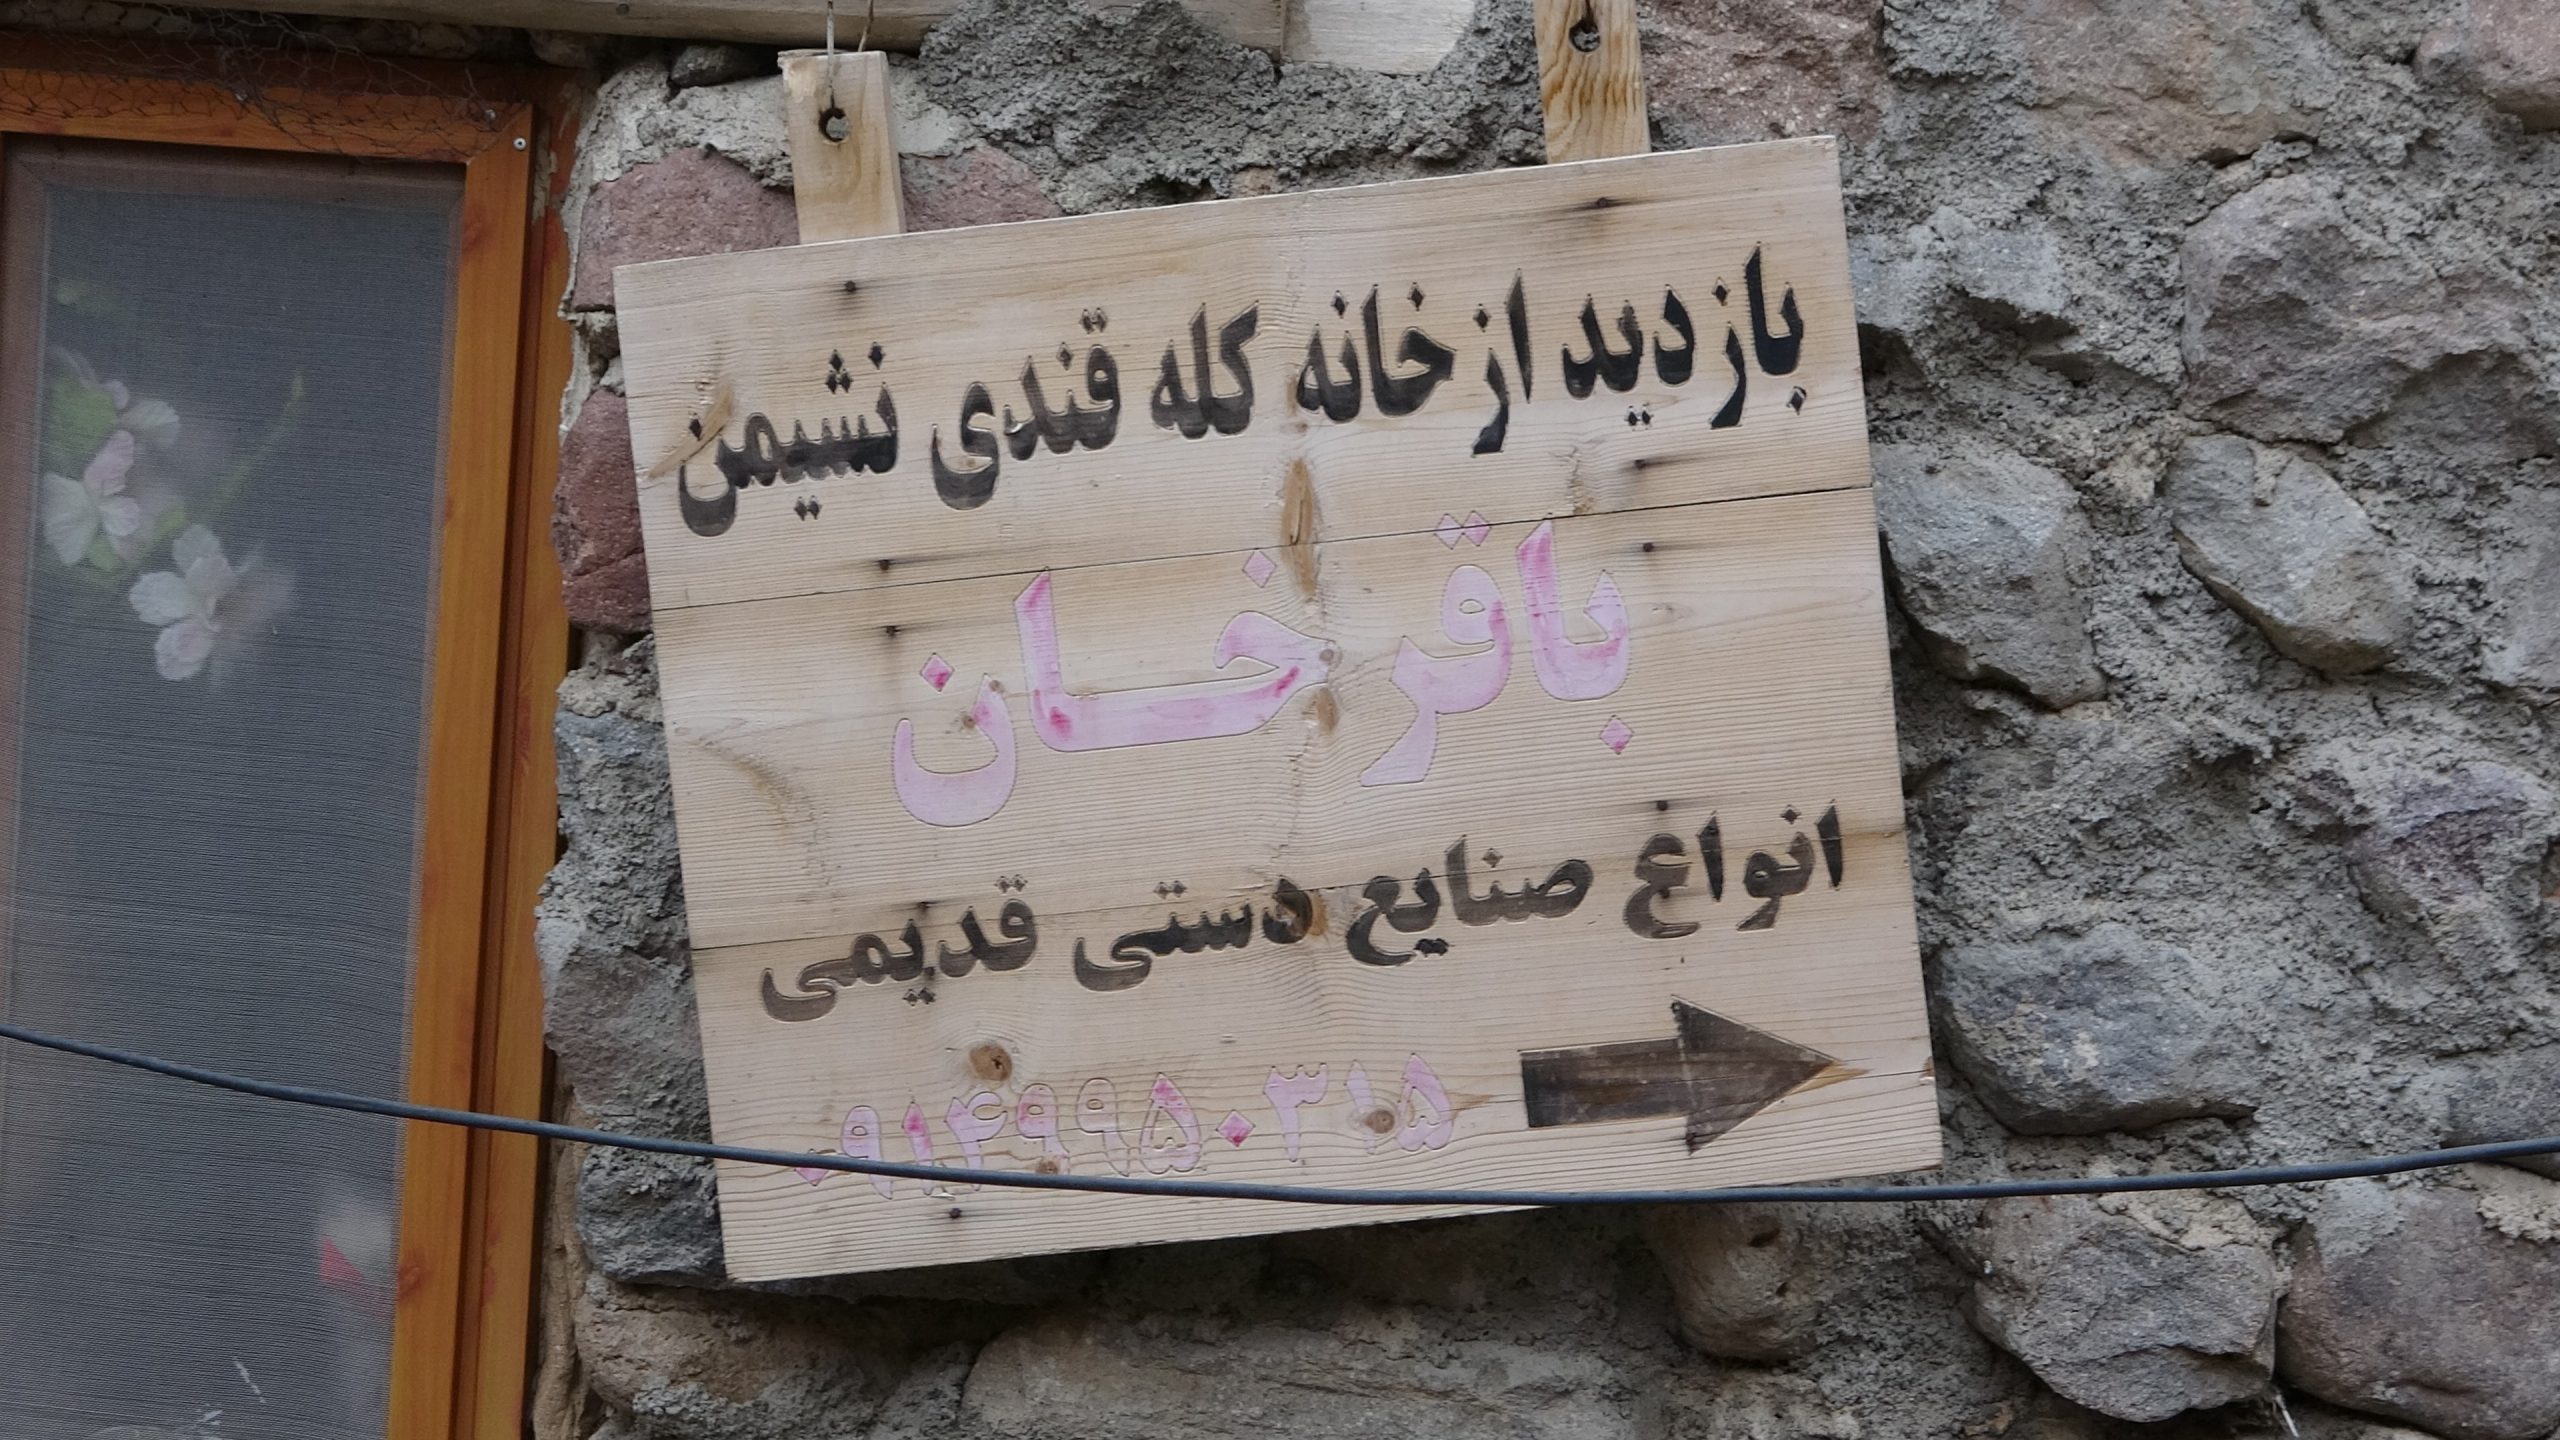 بازدید از خانه کله قندی نشیمن
باقرخان
انواع صنایع دستی قدیمی
۰۹۱۴۹۹۵۰۳۱۵